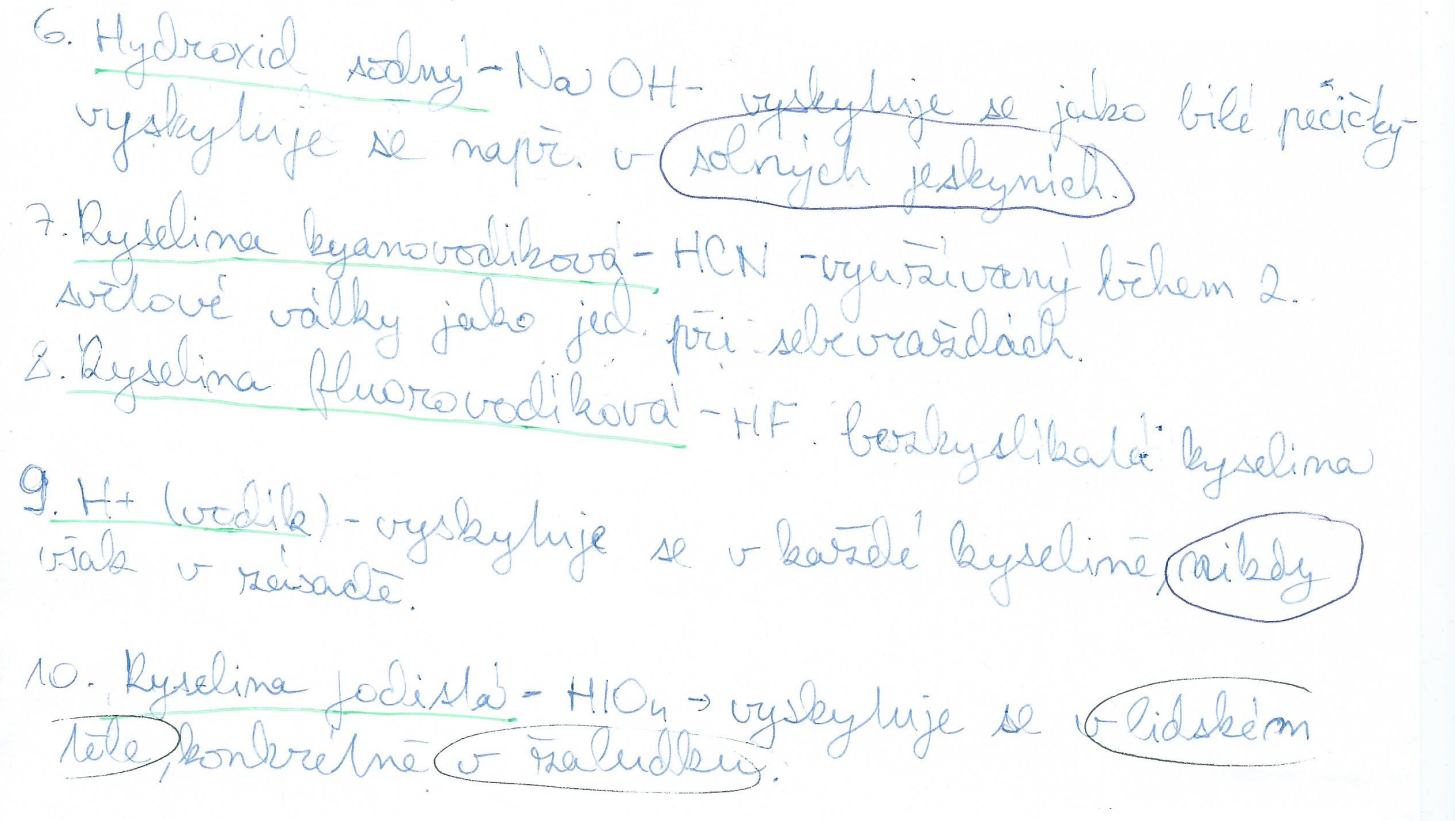 6. Hydroxid sodný - NaOH - vyskytuje se jako bílé pecičky
vyskytuje se např. v solných jeskyních.
7. Kyselina kyanovodíková - HCN - využívaný během 2.
světové války jako jed při sebevraždách.
8. Kyselina fluorovodíková - HF. bezkyslíkatá kyselina
9. H+ (vodík) - vyskytuje se v každé kyselině, nikdy
však v zásadě.
10. Kyselina jodistá - HIO₄ → vyskytuje se v lidském
těle, konkrétně v žaludku.